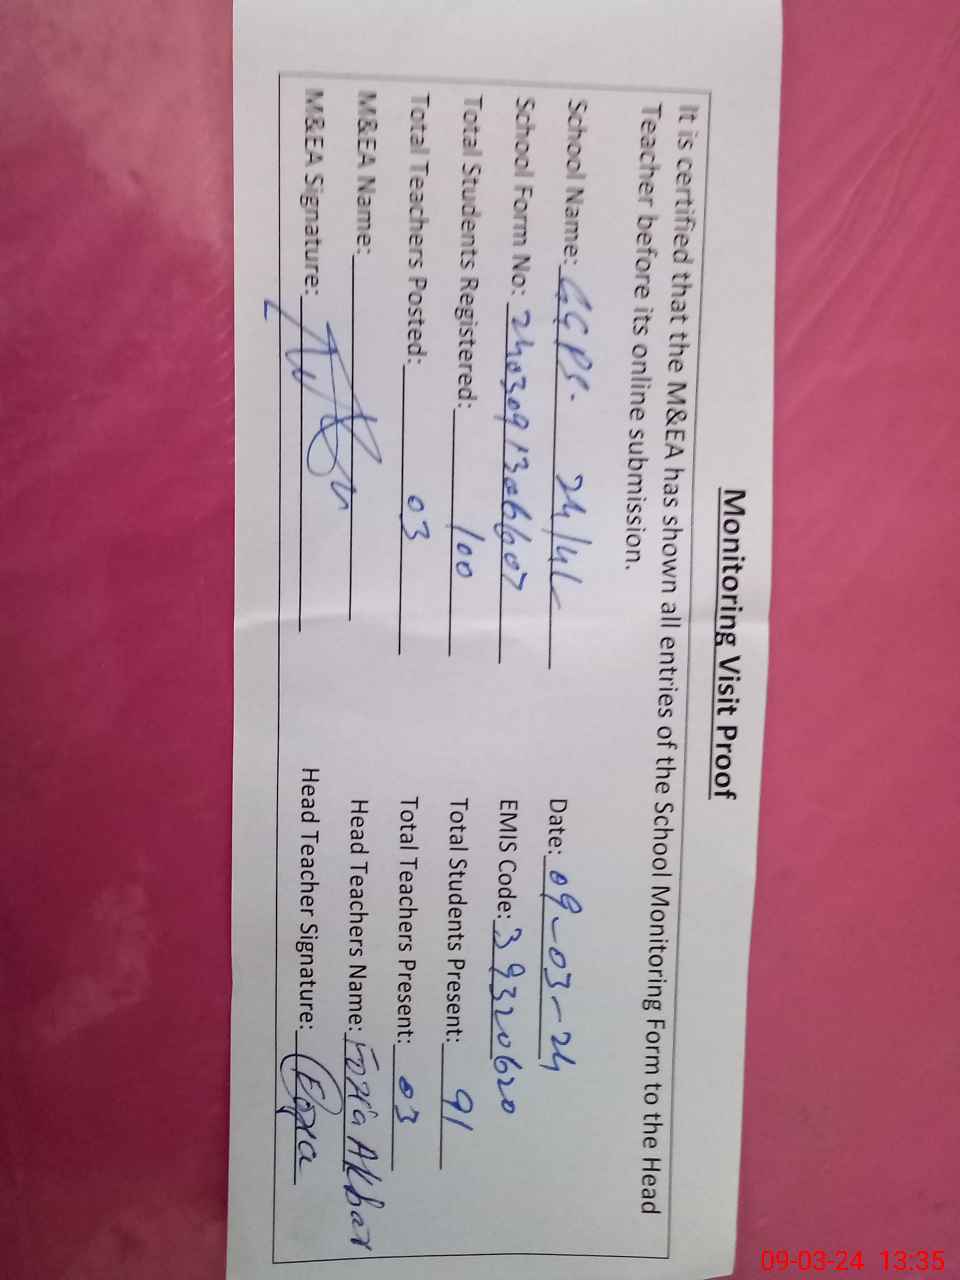 Monitoring Visit Proof
It is certified that the M&EA has shown all entries of the School Monitoring Form to the Head
Teacher before its online submission.
School Name: GGPS. 24/4L Date: 09-03-24
School Form No: 2403091306607 EMIS Code: 39320620
Total Students Registered: 100 Total Students Present: 91
Total Teachers Posted: 03 Total Teachers Present: 03
M&EA Name: Head Teachers Name: Fozia Akbar
M&EA Signature: Head Teacher Signature: Fozia
09-03-24 13:35